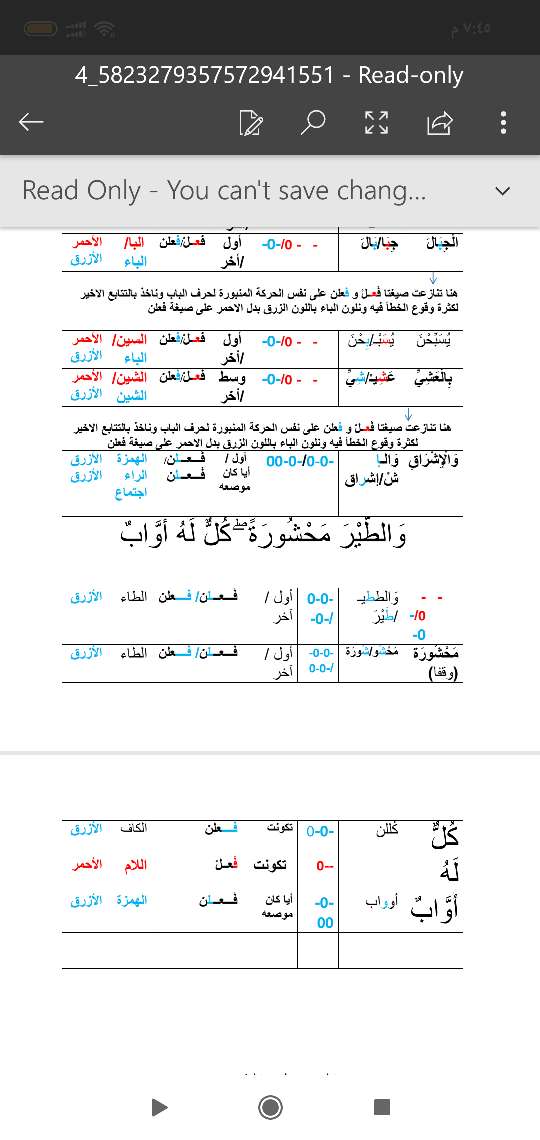 ٧:٤٥ م
4_5823279357572941551 - Read-only
Read Only - You can't save chang...
الْجِبَالَ جِبَا/بَالَ - - 0/-0- أول فعل/فعلن البا/ الأحمر
/أخر الباء الأزرق
هنا تنازعت صيغتا فعل و فعلن على نفس الحركة المنبورة لحرف الباب وناخذ بالتتابع الاخير
لكثرة وقوع الخطأ فيه ونلون الباء باللون الزرق بدل الاحمر على صيغة فعلن
يُسَبِّحْنَ يُسَبْـ/بِحْنَ - - 0/-0- أول فعل/فعلن السين/ الأحمر
/أخر الباء الأزرق
بِالْعَشِيِّ عَشِيْـ/شِيِّ - - 0/-0- وسط فعل/فعلن الشين/ الأحمر
/أخر الشين الأزرق
هنا تنازعت صيغتا فعل و فعلن على نفس الحركة المنبورة لحرف الباب وناخذ بالتتابع الاخير
لكثرة وقوع الخطأ فيه ونلون الباء باللون الزرق بدل الاحمر على صيغة فعلن
وَالْإِشْرَاقِ وَالـا -0-0/-0-00 أول / فـعـلن/ الهمزة الأزرق
ثنْ/إشراق أيا كان فـعـلن الراء الأزرق
موضعه اجتماع
وَالطَّيْرَ مَحْشُورَةً ۖ كُلٌّ لَهُ أَوَّابٌ
- - وَالططيـ -0-0 أول / فـعـلن/ فـعلن الطاء الأزرق
-/0 /طَيْرَ /-0- آخر
-0
مَحْشُورَة مَحْشو/شُورَة -0-0- أول / فـعـلن/ فـعلن الطاء الأزرق
(وقفا) /-0-0 آخر
كُلٌّ كُللن -0-0 تكونت فـعلن الكاف الأزرق
لَهُ --0 تكونت فعل اللام الأحمر
أَوَّابٌ أوواب -0- أيا كان فـعـلن الهمزة الأزرق
00 موضعه